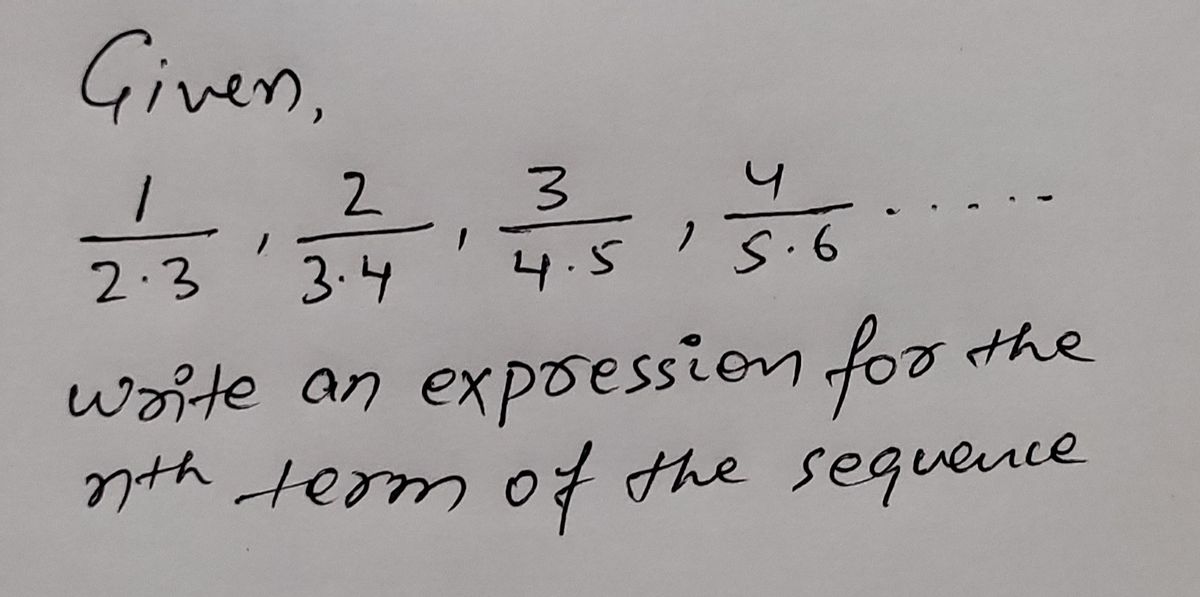 Given,
1/2·3, 2/3·4, 3/4·5, 4/5·6 .....
write an expression for the
nth term of the sequence